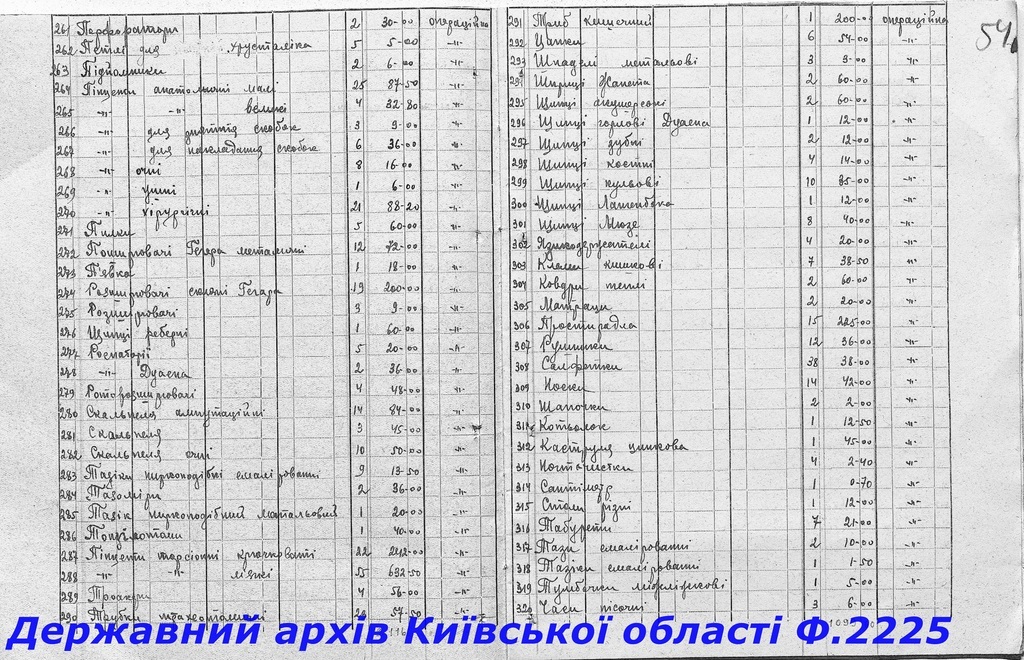 261 Перфоратори 2 30-00 операційна
262 Петлі для хрусталіка 5 5-00 -"-
263 Підйомники 2 6-00 -"-
264 Пінцети анатомічні малі 25 87-50 -"-
265 -"- -"- великі 4 32-80 -"-
266 -"- для зняття скобок 3 9-00 -"-
267 -"- для накладання скобок 6 36-00 -"-
268 -"- очні 8 16-00 -"-
269 -"- ушні 1 6-00 -"-
270 -"- хірургічні 21 88-20 -"-
271 Пилки 5 60-00 -"-
272 Поширювачі Гегара металичні 12 72-00 -"-
273 П'явка 1 18-00 -"-
274 Розширювачі Гегара 19 200-00 -"-
275 Розширювачі 3 9-00 -"-
276 Щипці реберні 1 60-00 -"-
277 Роспаторії 5 20-00 -"-
278 -"- Дуаена 2 36-00 -"-
279 Роторозширювачі 4 48-00 -"-
280 Скальпеля ампутаційні 14 84-00 -"-
281 Скальпеля 3 45-00 -"-
282 Скальпеля очні 10 50-00 -"-
283 Тазіки ниркоподібні емаліровані 9 13-50 -"-
284 Тазоміри 2 36-00 -"-
285 Тазік ниркоподібний метальовий 1 20-00 -"-
286 1 40-00 -"-
287 Пінцети 22 242-00 -"-
288 -"- -"- мягкі 55 632-50 -"-
289 Троакари 4 56-00 -"-
290 Трубки трахеотомічні 57-50 -"-
291 Триб кишечний 1 200-00 операційна
292 Цапки 6 54-00 -"-
293 Шпаделі метальові 3 3-00 -"-
294 Шприци Жанета 2 60-00 -"-
295 Щипці акушерські 2 60-00 -"-
296 Щипці горлові Дуаена 1 12-00 -"-
297 Щипці зубні 2 12-00 -"-
298 Щипці костні 4 14-00 -"-
299 Щипці кульові 10 85-00 -"-
300 Щипці 1 12-00 -"-
301 Щипці Мюзе 8 40-00 -"-
302 Язикодержателі 4 20-00 -"-
303 Клеми кишкові 7 38-50 -"-
304 Ковдри теплі 2 60-00 -"-
305 Матраци 2 20-00 -"-
306 Простирадла 15 225-00 -"-
307 Рушники 12 36-00 -"-
308 Салфетки 38 38-00 -"-
309 Носки 14 42-00 -"-
310 Шапочки 2 2-00 -"-
311 Котьолок 1 12-50 -"-
312 Каструля цинкова 1 45-00 -"-
313 Ногтечистки 4 2-40 -"-
314 Сантіметр 1 0-70 -"-
315 Столи різні 1 12-00 -"-
316 Табурети 7 21-00 -"-
317 Тази емаліровані 2 10-00 -"-
318 Тазіки емаліровані 1 1-50 -"-
319 Тумбочки 1 5-00 -"-
320 Часи пісочні 3 6-00 -"-
54
Державний архів Київської області Ф.2225